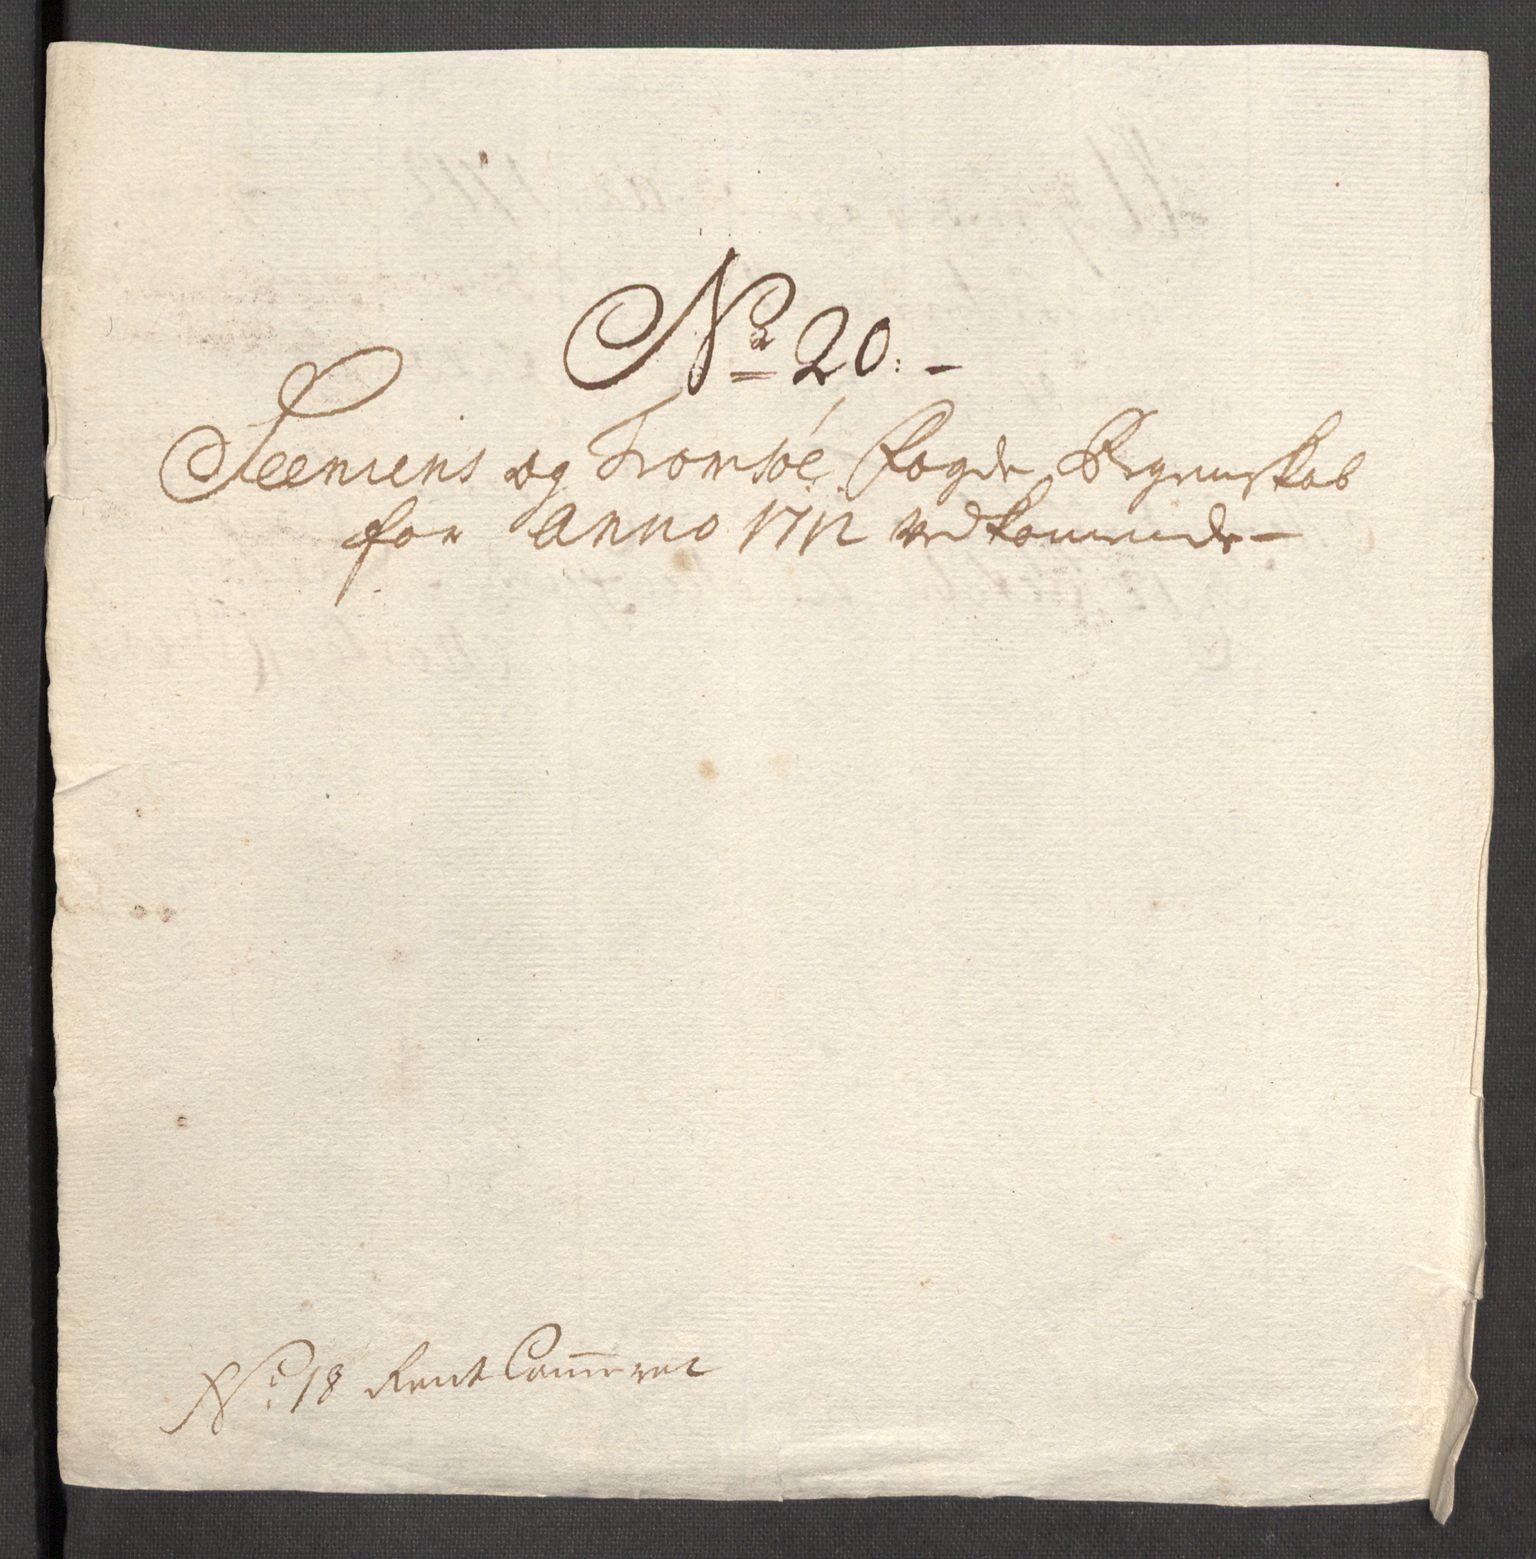 No 20. –
Seeniens og Tromsöe Fogde Regenskab
for Anno 1712 vedkommende –
No. 18 Rent Cammeret